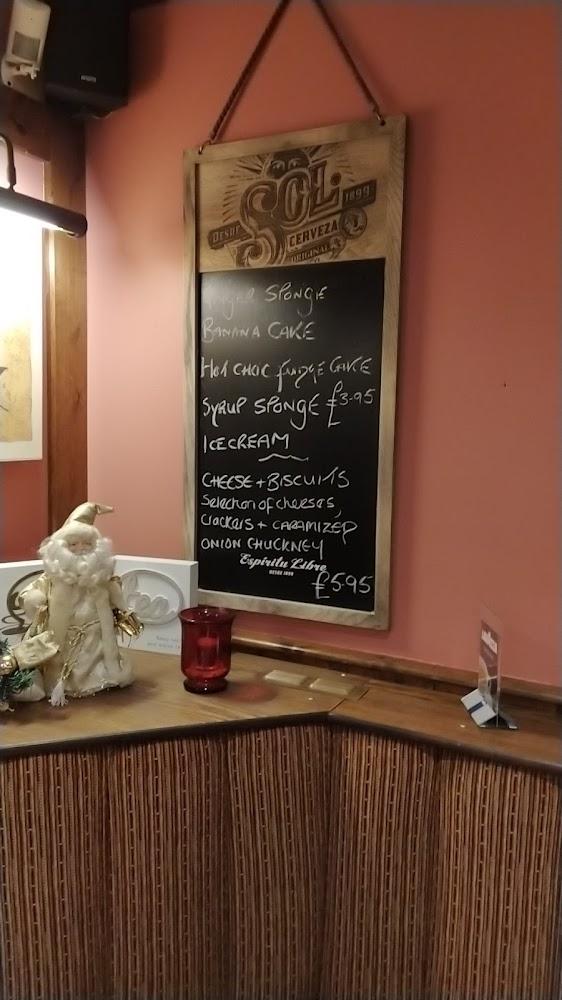 SOL
DESDE 1899
CERVEZA
ORIGINAL
SPONGE
BANANA CAKE
HOT CHOC fudge CAKE
SYRUP SPONGE £3.95
ICECREAM
CHEESE + BISCUITS
Selection of cheeses,
CRackers + CARAMIZED
ONION CHUCKNEY
Espíritu Libre
DESDE 1899
£5.95